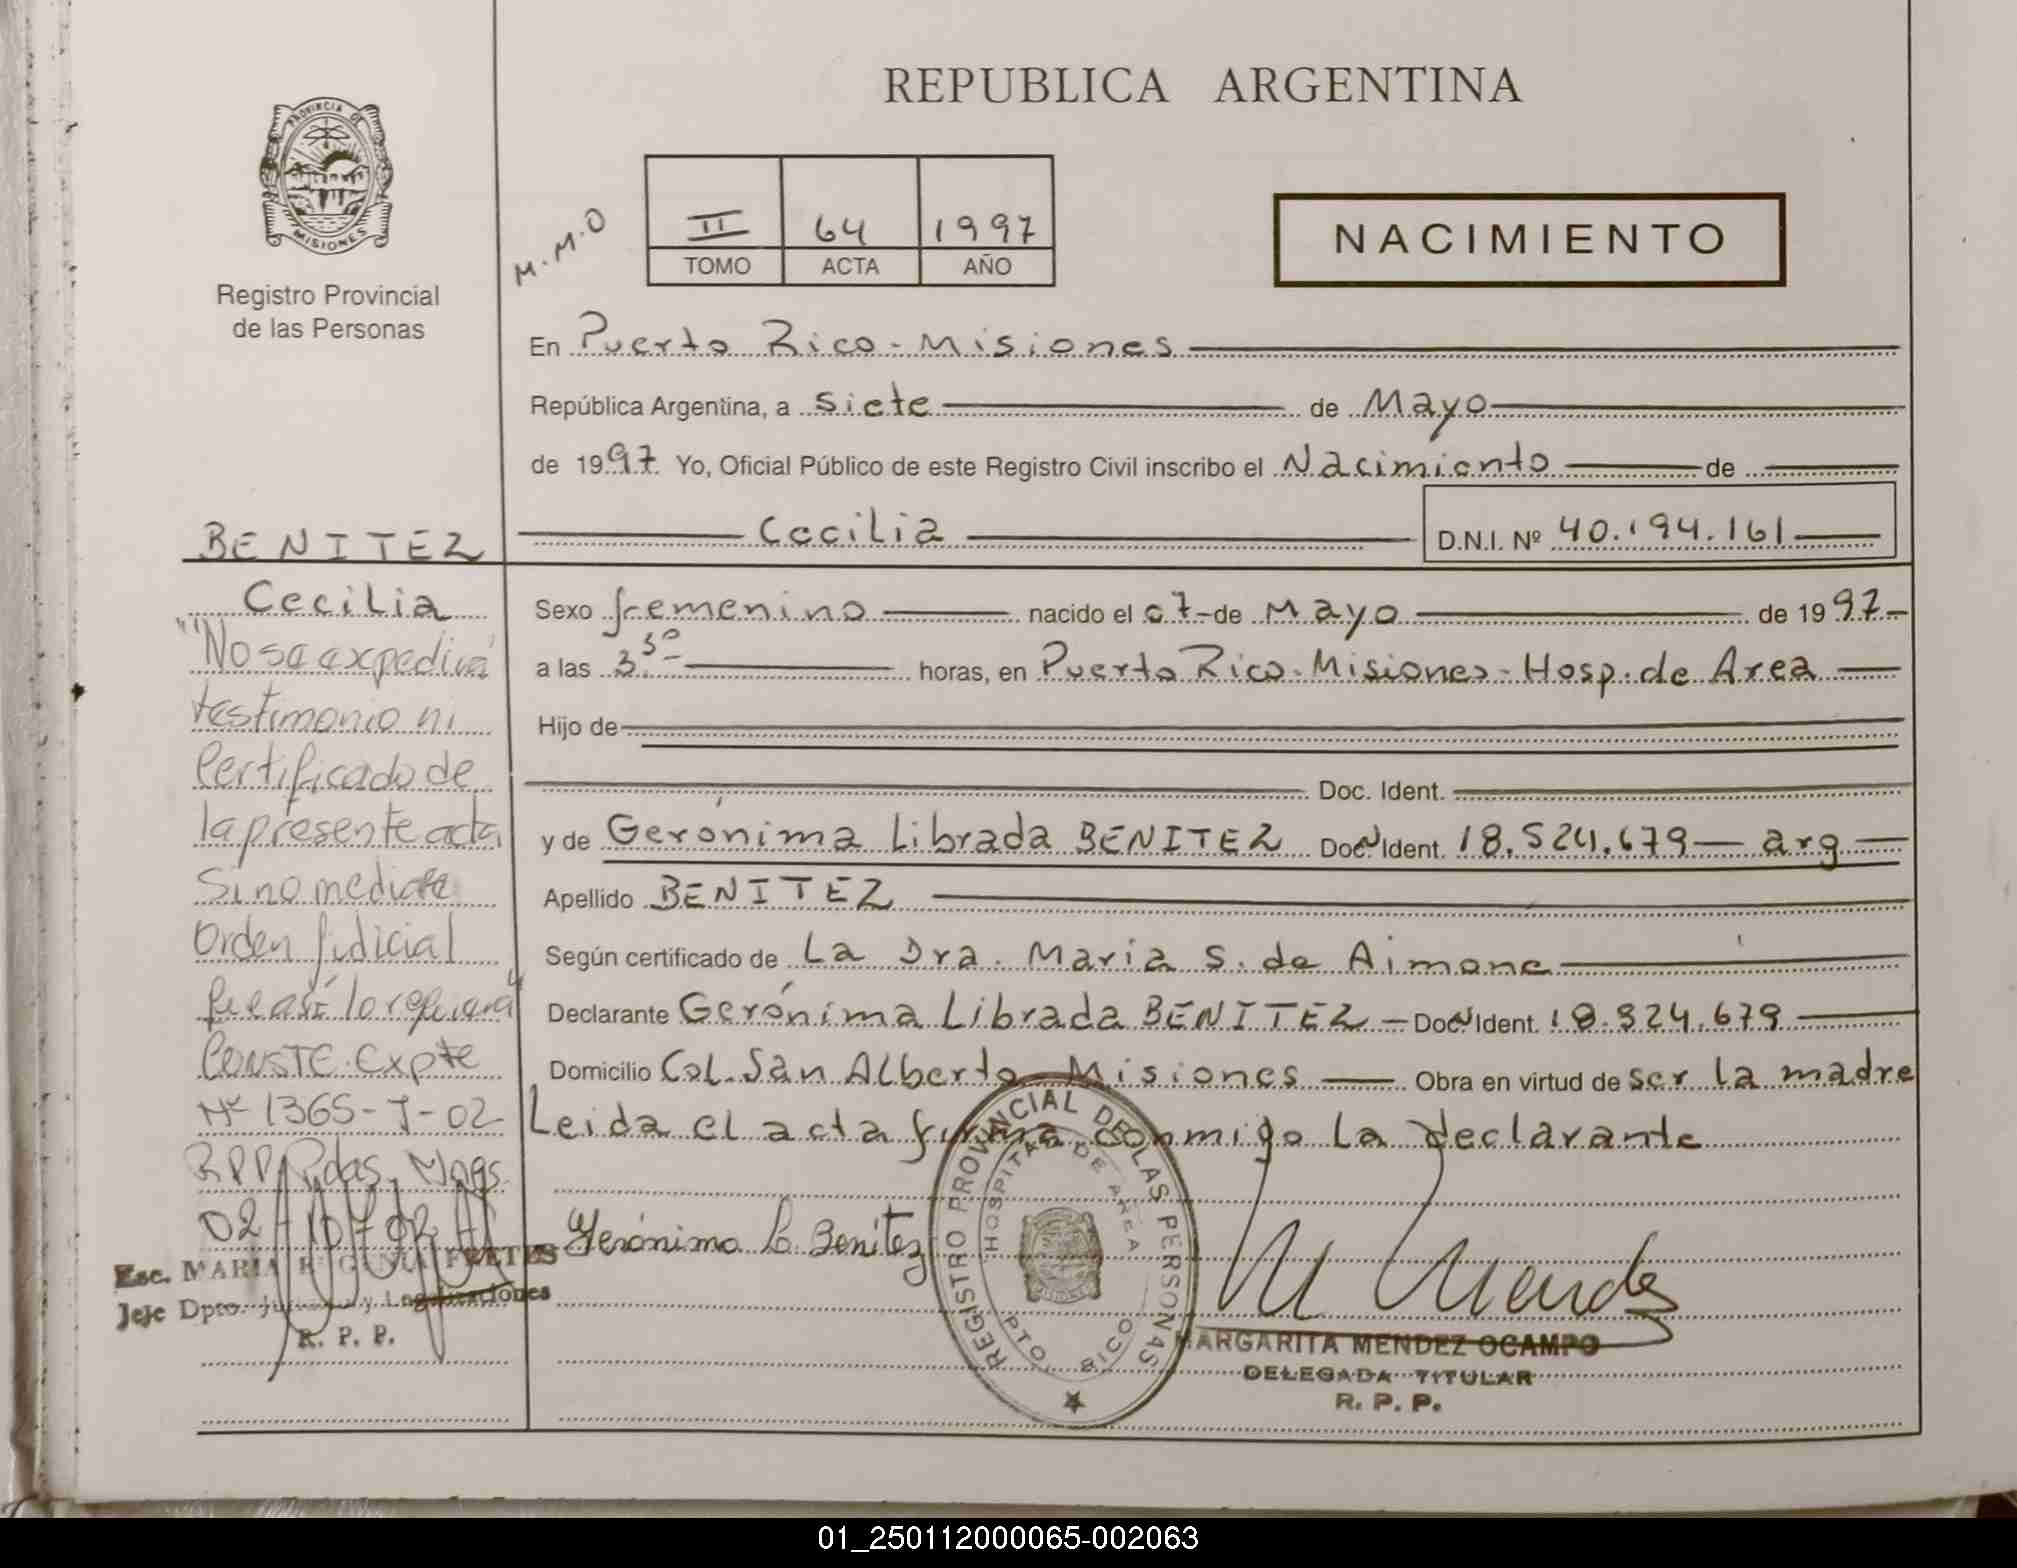 REPUBLICA ARGENTINA
PROVINCIA DE
MISIONES
Registro Provincial
de las Personas
M.M.O
II 64 1997
TOMO ACTA AÑO
NACIMIENTO
En Puerto Rico - Misiones
República Argentina, a siete de Mayo
de 1997. Yo, Oficial Público de este Registro Civil inscribo el Nacimiento de
Cecilia D.N.I. Nº 40.194.161
Sexo femenino nacido el 07 de Mayo de 1997
a las 3.30 horas, en Puerto Rico - Misiones - Hosp. de Area
Hijo de
Doc. Ident.
y de Gerónima Librada BENITEZ Doc. Ident. 18.524.679 - arg
Apellido BENITEZ
Según certificado de La Dra. María S. de Aimone
Declarante Gerónima Librada BENITEZ - Doc. Ident. 18.524.679
Domicilio Col. San Alberto Misiones Obra en virtud de ser la madre
Leida el acta firma conmigo la declarante
Gerónima L. Benítez
REGISTRO PROVINCIAL DE LAS PERSONAS
HOSPITAL DE AREA
PTO. RICO
M Mendez
MARGARITA MENDEZ OCAMPO
DELEGADA TITULAR
R. P. P.
BENITEZ
Cecilia
"No se expedirá
testimonio ni
Certificado de
la presente acta
Sino mediante
Orden Judicial
que así lo requiera"
CONSTE. Expte
Nº 1365-J-02
RPP Pdas. Mnes.
02-107-02
Esc. MARIA FRETES
Jefe Dpto. y Legalizaciones
R. P. P.
01_250112000065-002063